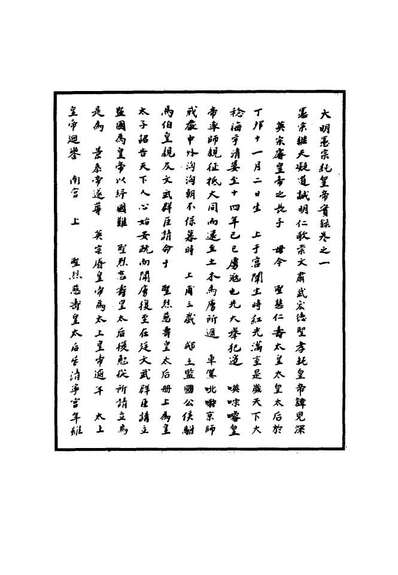 大明憲宗純皇帝實錄卷之一
憲宗繼天凝道誠明仁敬崇文肅武宏德聖孝純皇帝諱見深
英宗睿皇帝之長子 母今 聖慈仁壽太皇太后於
丁卯十一月二日生 上于宮闈生時紅光滿室是歲天下大
稔海宇清晏至十四年己巳虜酋也先大舉犯邊 英宗睿皇
帝率師親征抵大同而還至土木為虜所遏 車駕北狩京師
戒嚴中外洶洶朝不保暮時 上甫三歲 郕王監國公侯駙
馬伯皇親及文武群臣請命于 聖烈慈壽皇太后冊上為皇
太子詔告天下人心始安既而聞虜復至在廷文武群臣請立
監國為皇帝以紓國難 聖烈慈壽皇太后復勉從所請立焉
是為 景泰帝遙尊 英宗睿皇帝為太上皇帝逾年 太上
皇帝迴鑾 南宮 上 聖烈慈壽皇太后居清寧宮年雖